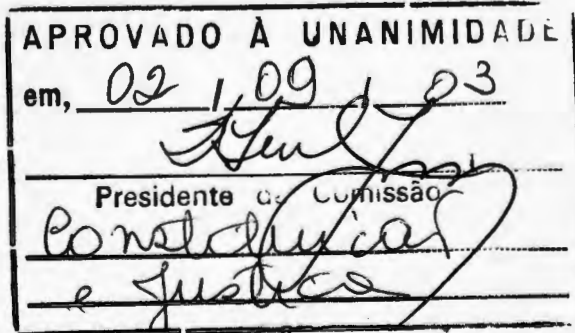 APROVADO À UNANIMIDADE
em, 02 / 09 / 03
Presidente da Comissão
Constituição
e Justiça